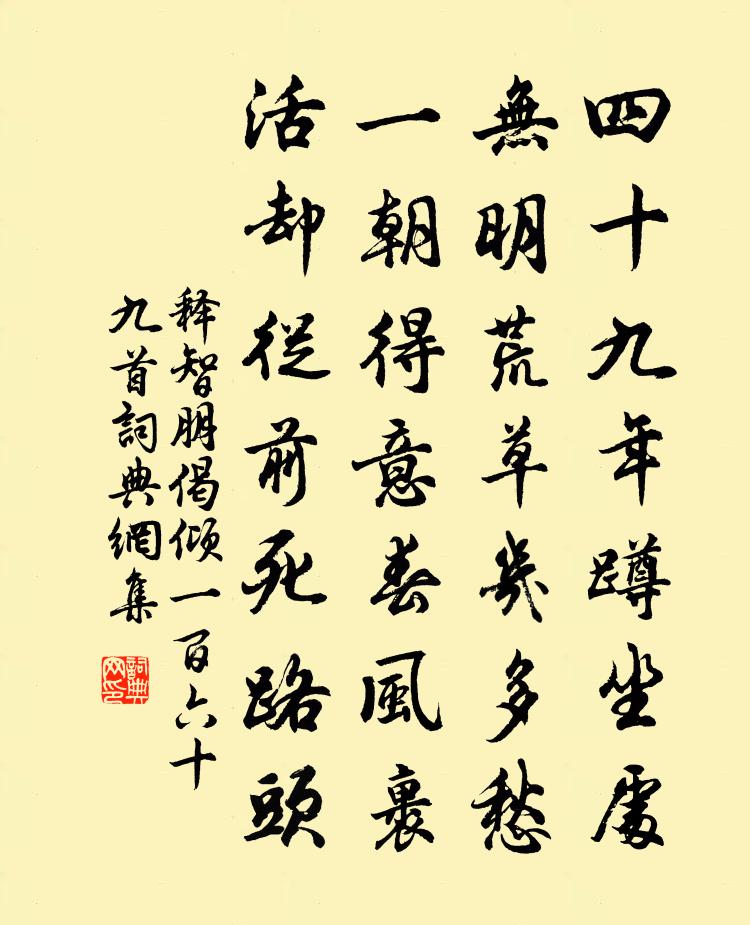 四十九年蹲坐處
無明荒草幾多愁
一朝得意春風裏
活却從前死路頭
释智朋偈傾一百六十
九首詞典網集
詞典网印